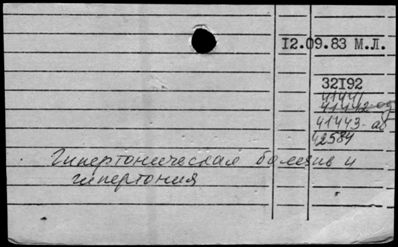 12.09.83 М.Л.
32192
41441
41442-ад
41443-аб
42584
Гипертоническая болезнь и
гипертония